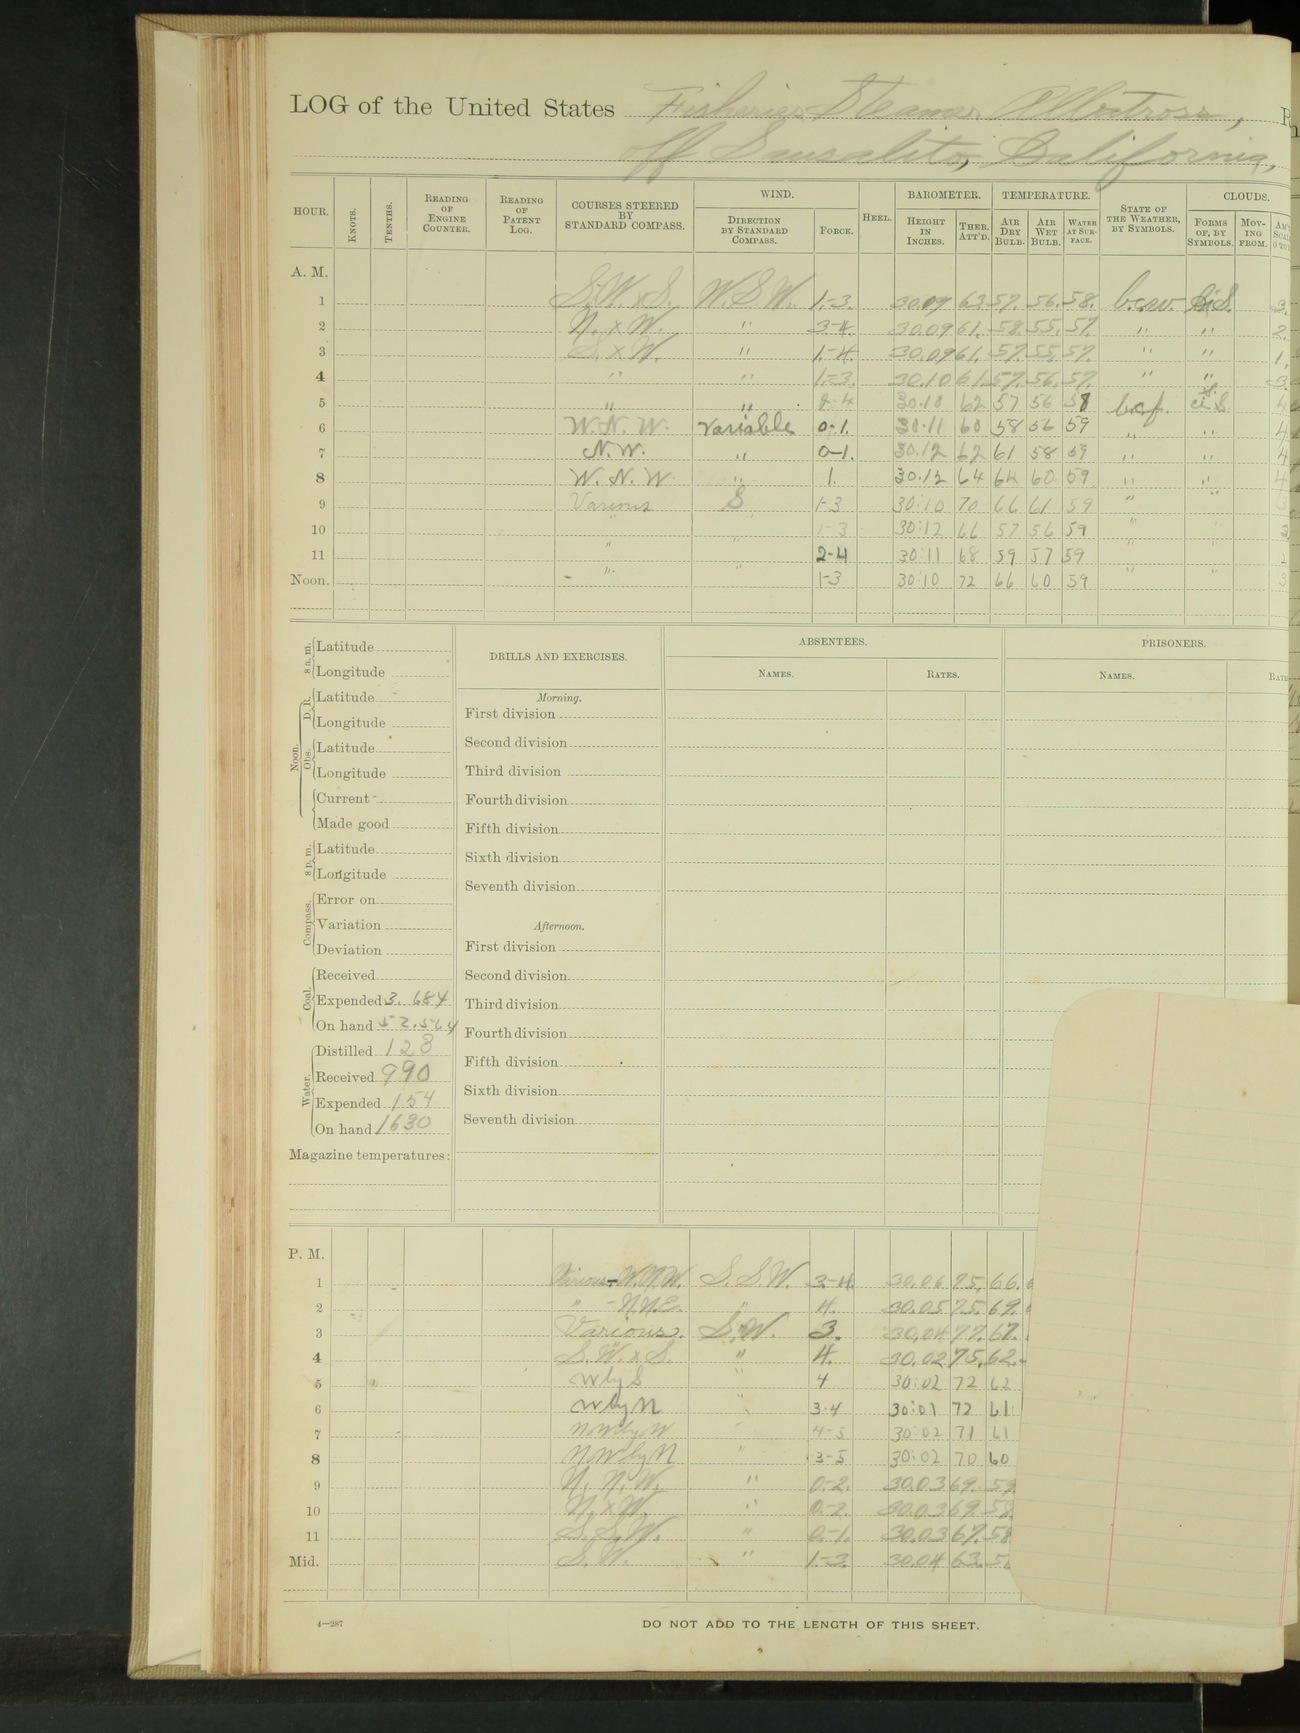 LOG of the United States Fisheries Steamer Albatross,
off Sausalito, California,
HOUR. KNOTS. TENTHS. READING OF ENGINE COUNTER. READING OF PATENT LOG. COURSES STEERED BY STANDARD COMPASS. WIND. DIRECTION BY STANDARD COMPASS. FORCE. HEEL. BAROMETER. HEIGHT IN INCHES. THER. ATT'D. TEMPERATURE. AIR DRY BULB. AIR WET BULB. WATER AT SURFACE. STATE OF THE WEATHER, BY SYMBOLS. CLOUDS. FORMS OF, BY SYMBOLS. MOVING FROM.
A. M.
1 S.W. x S. W.S.W. 1-3. 30.09 63. 57. 56. 58. b.c.w.
2 N. x W. " 3-4. 30.09 61. 58. 55. 57. " " 2.
3 S. x W. " 1-4. 30.09 61. 57. 55. 57. " " 1.
4 " " 1-3. 30.10 61. 57. 56. 57. " " 3.
5 " " 2-4 30.10 62 57 56 58 b.c.f. 4
6 W. N. W. Variable 0-1. 30.11 60 58 56 59 " " 4
7 N. W. " 0-1. 30.12 62 61 58 59 " " 4
8 W. N. W. " 1. 30.12 64 64 60 59 " " 4
9 Various S 1-3 30:10 70 66 61 59 " "
10 " " 1-3 30:12 66 57 56 59 "
11 " " 2-4 30:11 68 59 57 59 "
Noon. " " 1-3 30:10 72 66 60 59 " "
8 a. m. Latitude
Longitude
Noon. D. R. Latitude
Longitude
Obs. Latitude
Longitude
Current
Made good
8 p. m. Latitude
Longitude
Compass. Error on
Variation
Deviation
Coal. Received
Expended 3.684
On hand 52.564
Water. Distilled 128
Received 990
Expended 154
On hand 1630
Magazine temperatures:
DRILLS AND EXERCISES.
Morning.
First division
Second division
Third division
Fourth division
Fifth division
Sixth division
Seventh division
Afternoon.
First division
Second division
Third division
Fourth division
Fifth division
Sixth division
Seventh division
ABSENTEES.
NAMES. RATES.
PRISONERS.
NAMES.
P. M.
1 Various-W.N.W. S.S.W. 3-4. 30.06 75. 66.
2 " -N.N.E. " 4. 30.05 75. 69.
3 Various. S.W. 3. 30.04 77. 67.
4 S.W. x S. " 4. 30.02 75. 62.
5 W by S " 4 30:02 72 62
6 W by N " 3-4 30:01 72 61
7 NW by W " 4-5 30:02 71 61
8 NW by N " 3-5 30:02 70 60
9 N. N. W. " 0-2. 30.03 69. 59.
10 N. x W. " 0-2. 30.03 69. 58.
11 S. S. W. " 0-1. 30.03 67. 58
Mid. S. W. " 1-3. 30.04 63.
4—287
DO NOT ADD TO THE LENGTH OF THIS SHEET.